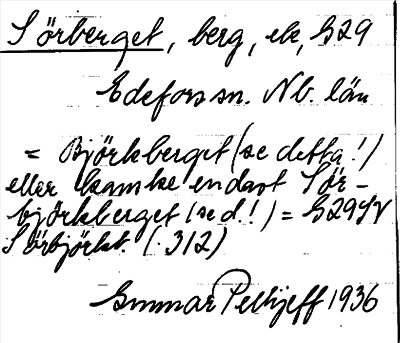 Sörberget, berg, ek, G29
Edefors sn. Nb. län
= Björkberget (se detta!)
eller kanske endast Sör-
björkberget (se d!) = G29SV
Sörbjörkb. (312)
Gunnar Pellijeff 1936